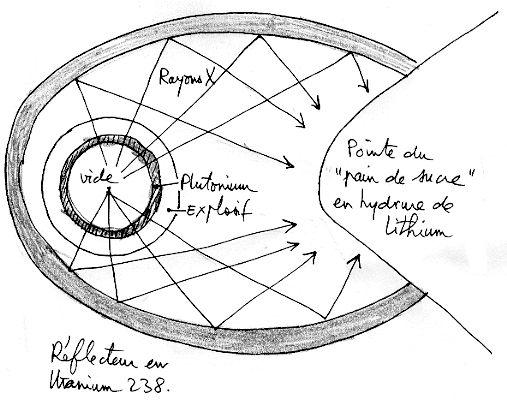 Rayons X
vide
Plutonium
Explosif
Pointe du
"pain de sucre"
en hydrure de
Lithium
Réflecteur en
Uranium 238.